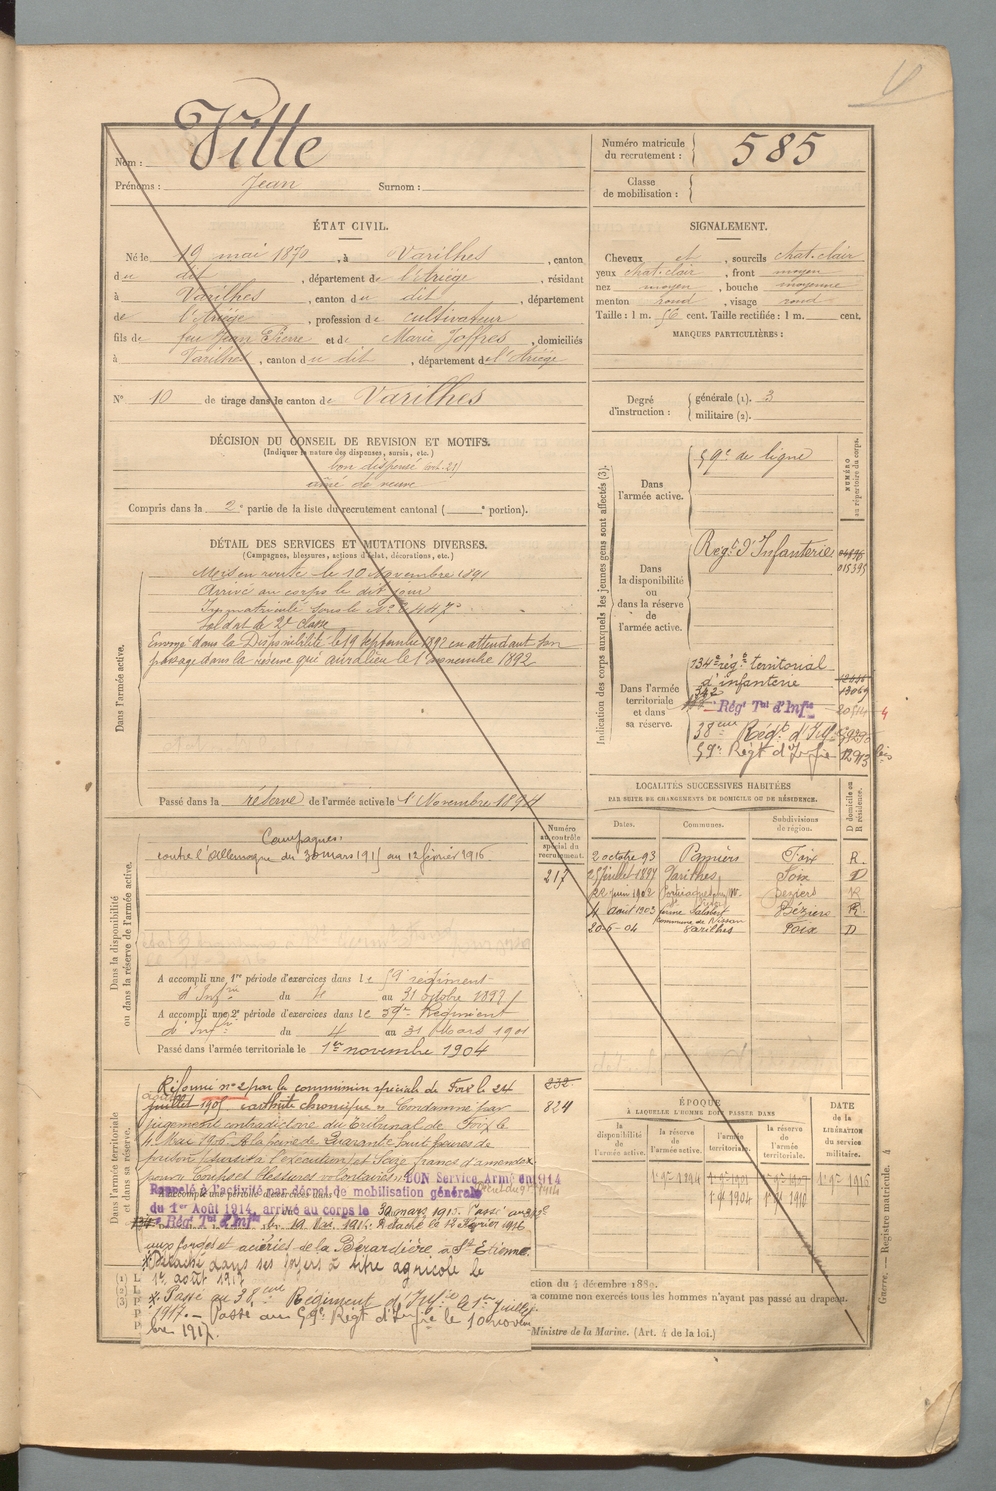 Ville
Nom :
Prénoms : Jean Surnom :
Numéro matricule du recrutement : 585
Classe de mobilisation :
ÉTAT CIVIL.
Né le 19 mai 1870, à Varilhes, canton
du dit, département de l'Ariége, résidant
à Varilhes, canton du dit, département
de l'Ariége, profession de cultivateur
fils de feu Jean Pierre et de Marie Joffres, domiciliés
à Varilhes, canton du dit, département de l'Ariége
N° 10 de tirage dans le canton de Varilhes
SIGNALEMENT.
Cheveux et, sourcils chat. clair
yeux chat. clair, front moyen
nez moyen, bouche moyenne
menton rond, visage rond
Taille : 1 m. 56 cent. Taille rectifiée : 1 m. cent.
MARQUES PARTICULIÈRES :
Degré d'instruction : générale (1). 3
militaire (2).
DÉCISION DU CONSEIL DE REVISION ET MOTIFS.
(Indiquer la nature des dispenses, sursis, etc.)
bon dispensé (art. 21)
aîné de veuve
Compris dans la 2e partie de la liste du recrutement cantonal ( e portion).
DÉTAIL DES SERVICES ET MUTATIONS DIVERSES.
(Campagnes, blessures, actions d'éclat, décorations, etc.)
Dans l'armée active.
Mis en route le 10 Novembre 1891
Arrivé au corps le dit jour
Immatriculé sous le N°
Soldat de 2e classe
Envoyé dans la Disponibilité le 19 septembre 1892 en attendant son
passage dans la réserve qui aura lieu le 1er novembre 1892
Passé dans la réserve de l'armée active le 1er Novembre 1894
Indication des corps auxquels les jeunes gens sont affectés (3).
NUMÉRO au répertoire du corps.
Dans l'armée active.
59e de ligne
Dans la disponibilité ou dans la réserve de l'armée active.
Régt d'Infanterie
015395
Dans l'armée territoriale et dans sa réserve.
134e régt territorial
d'infanterie
13069
Régt Tal d'Infie
38eme Régt d'Inf
59e Régt d'Infie 12913 bis
LOCALITÉS SUCCESSIVES HABITÉES
PAR SUITE DE CHANGEMENTS DE DOMICILE OU DE RÉSIDENCE.
Dates. Communes. Subdivisions de région. D domicile ou R résidence.
2 octobre 93 Pamiers Foix R.
25 juillet 1897 Varilhes Foix D
22 juin 1902 Béziers R
4 août 1903 ferme Salabert Béziers R.
Commune de Nissan
20-6-04 Varilhes Foix D
Dans la disponibilité ou dans la réserve de l'armée active.
Numéro au contrôle spécial du recrutement.
217
Campagnes:
contre l'Allemagne du 30 mars 1915 au 12 février 1916.
A accompli une 1re période d'exercices dans le 59e régiment
d'Infrie du 4 au 31 octobre 1897
A accompli une 2e période d'exercices dans le 59e Régiment
d'Infrie du 4 au 31 Mars 1901
Passé dans l'armée territoriale le 1er novembre 1904
Dans l'armée territoriale et dans sa réserve.
232
824
Réformé n° 2 par la commission spéciale de Foix le 24
juillet 1905 Condamné par
jugement contradictoire du Tribunal de Foix le
Mai 1906 à la peine de Quarante huit heures de
prison (sursis à l'exécution) et Seize francs d'amende
pour Coups et blessures volontaires. BON Service Armé en 1914
Rappelé à l'activité par décret de mobilisation générale
A accompli une période d'exercices dans
du 1er Août 1914, arrivé au corps le 30 mars 1915. Passé au
Régt Tal d'Infie le 19 Mai 1915. Détaché le 12 février 1916
aux forges et aciéries de la Bérardière, à St Etienne.
Détaché dans ses foyers à titre agricole le
1er août 1917
Passé au 38eme Régiment d'Infie le 1er Juillet
1917. — Passé au 59e Régt d'Infie le 10 novem
bre 1917.
ÉPOQUE
À LAQUELLE L'HOMME DOIT PASSER DANS
la disponibilité de l'armée active. la réserve de l'armée active. l'armée territoriale. la réserve de l'armée territoriale.
DATE de la LIBÉRATION du service militaire.
1er 9bre 1894 1er 9bre 1916
1er 9bre 1904 1er 9bre 1910
ction du 4 décembre 1889.
a comme non exercés tous les hommes n'ayant pas passé au drapeau.
Ministre de la Marine. (Art. 4 de la loi.)
Guerre. — Registre matricule. 4